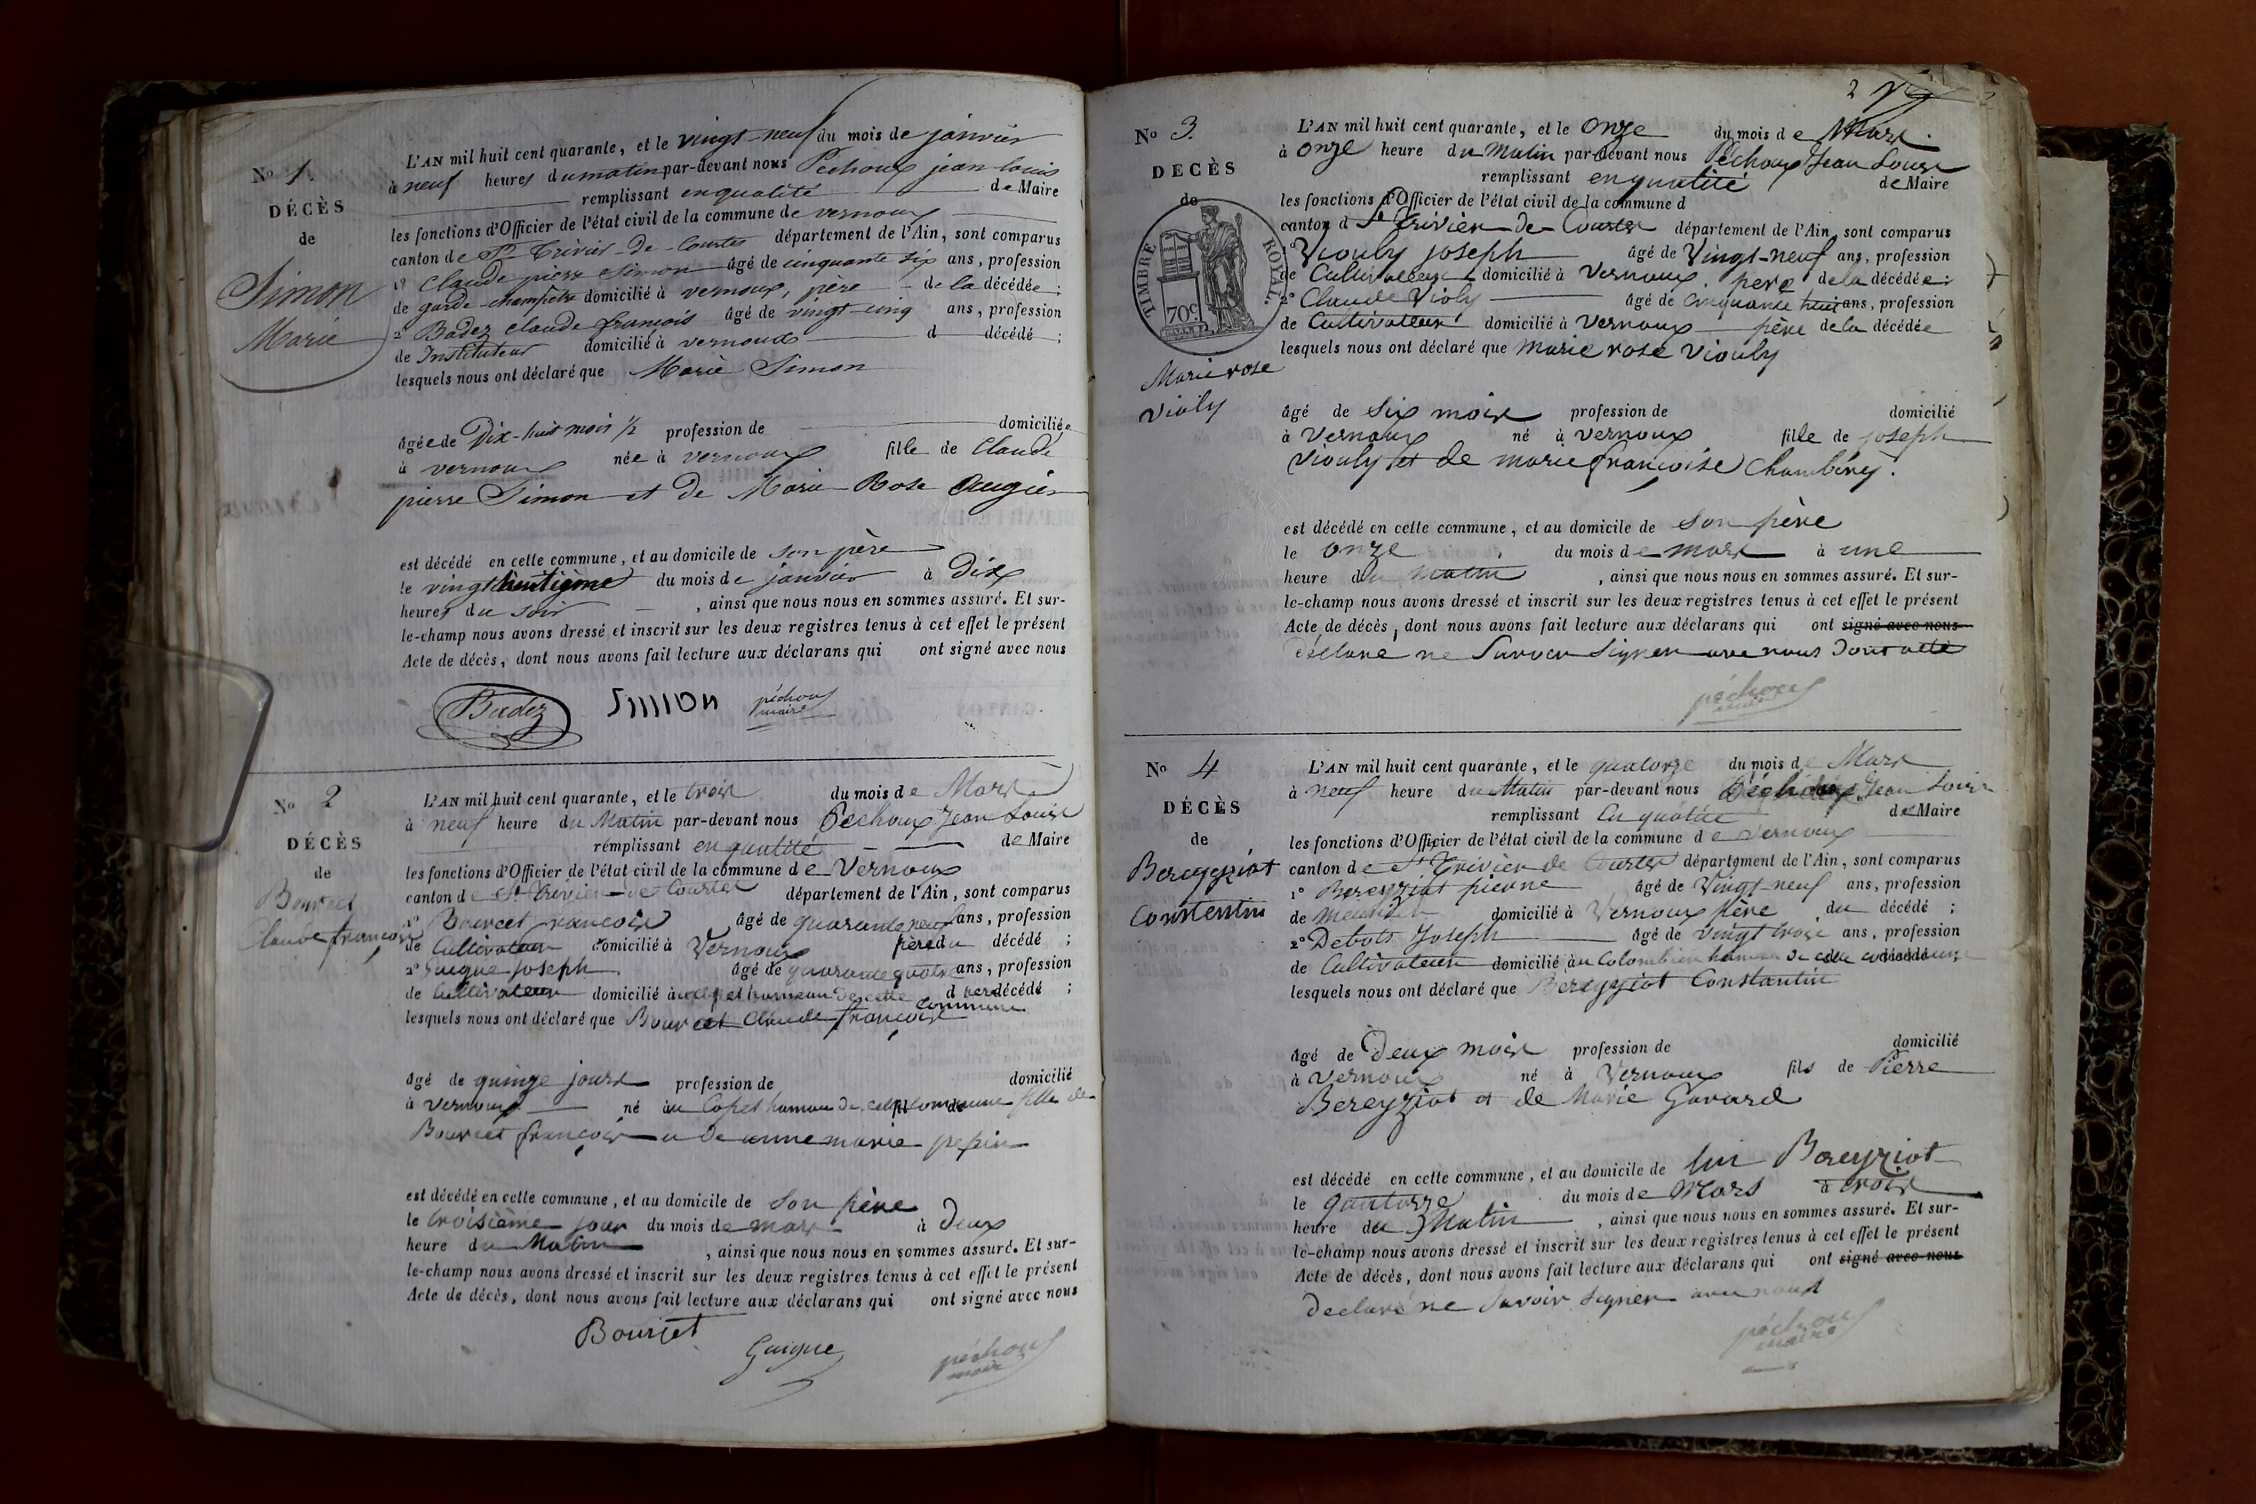 No 1.
DÉCÈS
de
Simon
Marie
L'AN mil huit cent quarante, et le vingt-neuf du mois de janvier
à neuf heures du matin par-devant nous Péchoux jean louis
remplissant en qualité de Maire
les fonctions d'Officier de l'état civil de la commune de vernoux
canton de St Trivier-de-Courtes département de l'Ain, sont comparus
1° Claude pierre Simon âgé de cinquante six ans, profession
de garde-champêtre domicilié à vernoux, père de la décédée ;
2° Badez claude françois âgé de vingt-cinq ans, profession
de Instituteur domicilié à vernoux d décédé ;
lesquels nous ont déclaré que Marie Simon
âgée de Dix-huit mois 1/2 profession de domiciliée
à vernoux née à vernoux fille de Claude
pierre Simon et de Marie Rose Augier
est décédé en cette commune, et au domicile de son père
le vingt huitième du mois de janvier à Dix
heures du soir , ainsi que nous nous en sommes assuré. Et sur-
le-champ nous avons dressé et inscrit sur les deux registres tenus à cet effet le présent
Acte de décès, dont nous avons fait lecture aux déclarans qui ont signé avec nous
Badez SIMON péchoux
maire
No 2
DÉCÈS
de
Bourcet
Claude françois
L'AN mil huit cent quarante, et le trois du mois de Mars
à neuf heure du Matin par-devant nous Péchoux Jean Louis
remplissant en qualité de Maire
les fonctions d'Officier de l'état civil de la commune de Vernoux
canton de St Trivier-de-Courtes département de l'Ain, sont comparus
1° Bourcet françois âgé de quarante neuf ans, profession
de Cultivateur domicilié à Vernoux père du décédé ;
2° Guigue Joseph âgé de quarante quatre ans, profession
de Cultivateur domicilié au hameau de cette d décédé ;
commune
lesquels nous ont déclaré que Bourcet Claude françois
âgé de quinze jours profession de domicilié
à vernoux né au hameau de cette commune fille de
Bourcet françois et de anne marie pepin
est décédé en cette commune, et au domicile de son père
le troisième jour du mois de mars à Deux
heure du Matin , ainsi que nous nous en sommes assuré. Et sur-
le-champ nous avons dressé et inscrit sur les deux registres tenus à cet effet le présent
Acte de décès, dont nous avons fait lecture aux déclarans qui ont signé avec nous
Bourcet Guigue péchoux
maire
2
No 3.
DÉCÈS
de
TIMBRE ROYAL.
70c
Marie rose
violy
L'AN mil huit cent quarante, et le onze du mois de Mars.
à onze heure du Matin par-devant nous Péchoux Jean Louis
remplissant en qualité de Maire
les fonctions d'Officier de l'état civil de la commune d
canton d St Trivier de Courtes département de l'Ain, sont comparus
1° Viouly joseph âgé de Vingt-neuf ans, profession
de Cultivateur domicilié à Vernoux. père de la décédée ;
2° Claude Violy âgé de Cinquante huit ans, profession
de Cultivateur domicilié à Vernoux père de la décédée
lesquels nous ont déclaré que Marie rose viouly
âgé de Six mois profession de domicilié
à Vernoux né à vernoux fille de joseph
Viouly et de marie françoise Chambéry.
est décédé en cette commune, et au domicile de Son père
le onze du mois de mars à une
heure du matin , ainsi que nous nous en sommes assuré. Et sur-
le-champ nous avons dressé et inscrit sur les deux registres tenus à cet effet le présent
Acte de décès, dont nous avons fait lecture aux déclarans qui ont signé avec nous
déclaré ne Savoir Signer avec nous
péchoux
maire
No 4
DÉCÈS
de
Bereyziat
Constentin
L'AN mil huit cent quarante, et le quatorze du mois de Mars
à neuf heure du Matin par-devant nous Péchoux Jean Louis
remplissant En qualité de Maire
les fonctions d'Officier de l'état civil de la commune de Vernoux
canton de St Trivier de Courtes département de l'Ain, sont comparus
1° Bereyziat pierre âgé de Vingt-neuf ans, profession
de domicilié à Vernoux père du décédé ;
2° Debots Joseph âgé de vingt trois ans, profession
de Cultivateur domicilié au Colombier hameau de cette commune
lesquels nous ont déclaré que Bereyziat Constantin
âgé de Deux mois profession de domicilié
à Vernoux né à Vernoux fils de Pierre
Bereyziat et de Marie Gavard
est décédé en cette commune, et au domicile de lui Bereyziat
le quatorze du mois de Mars à trois
heure du Matin , ainsi que nous nous en sommes assuré. Et sur-
le-champ nous avons dressé et inscrit sur les deux registres tenus à cet effet le présent
Acte de décès, dont nous avons fait lecture aux déclarans qui ont signé avec nous
déclaré ne Savoir signer avec nous
péchoux
maire